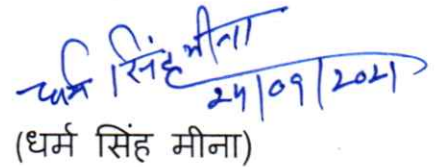 धर्म सिंह मीना
24/09/2021
(धर्म सिंह मीना)